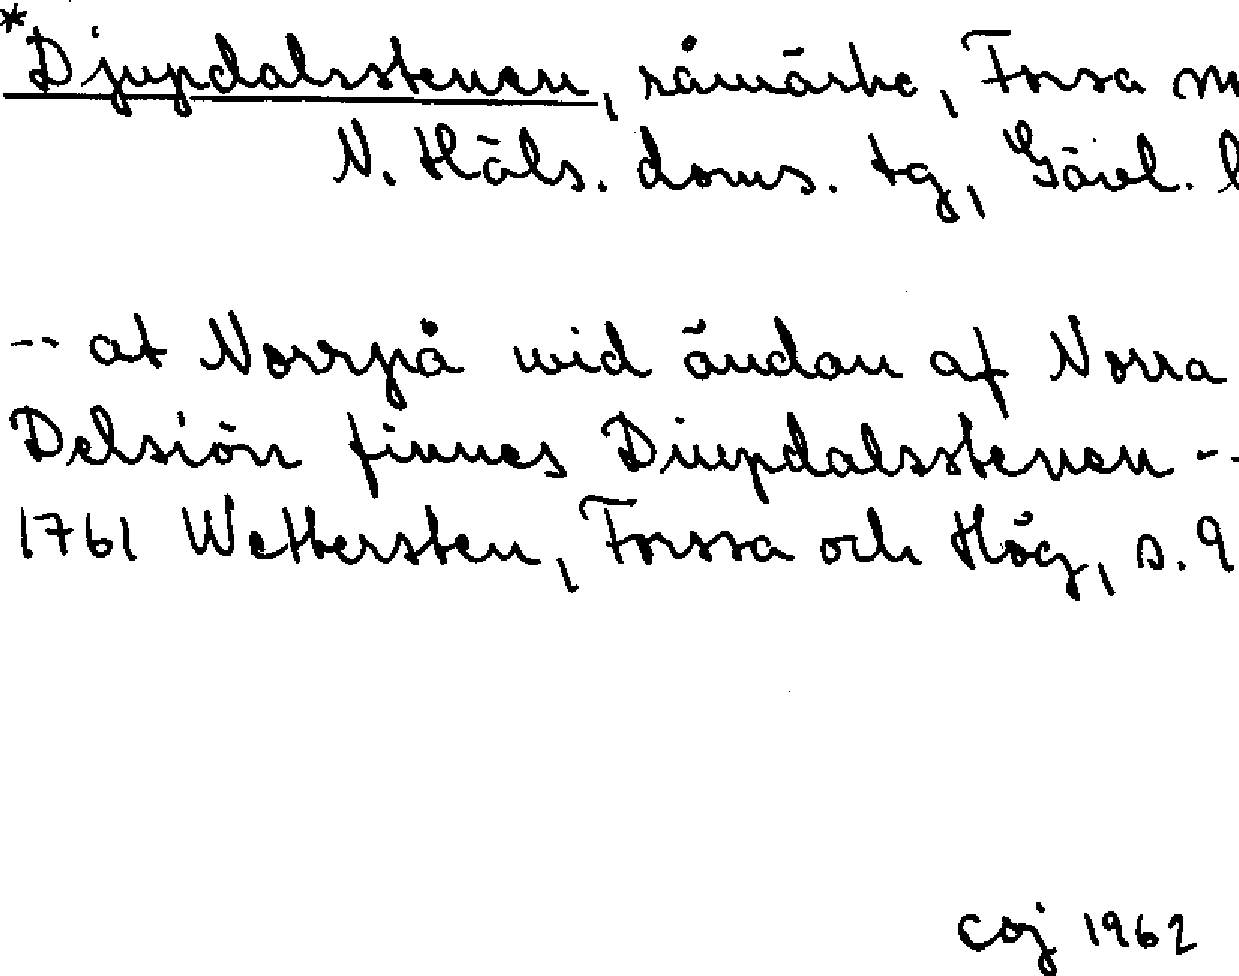 *Djupdalsstenen, råmärke, Forsa
N. Häls. doms. tg, Gävl. l
-- at Norrpå wid ändan af Norra
Delsiön finnes Diupdalsstenen --
1761 Wettersten, Forssa och Hög, s. 9
coj 1962